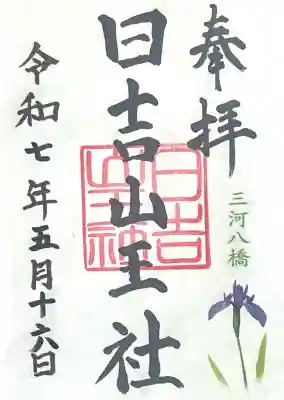 奉拝
三河八橋
日吉山王社
日吉山王社
令和七年五月十六日